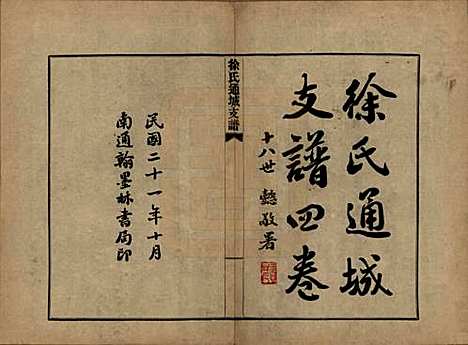 徐氏通城
支譜四卷
十八世 懿敬署
徐氏通城支譜
民國二十一年十月
南通翰墨林書局印